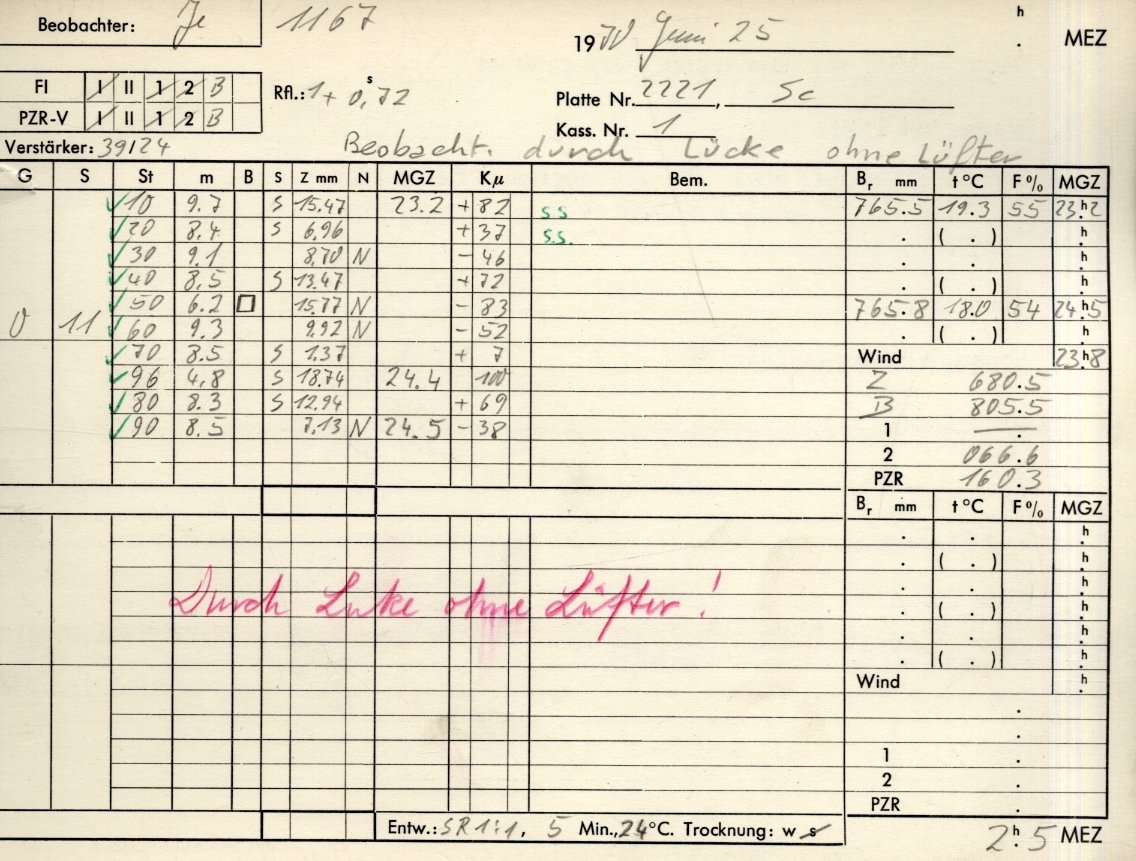 Beobachter: Je 1167 h
1970 Juni 25 . MEZ
FI I II 1 2 B
PZR-V I II 1 2 B
Rfl.: 1 + 0,72 s
Platte Nr. 2221, Sc
Kass. Nr. 1
Verstärker: 39/24 Beobacht. durch Lücke ohne Lüfter
G S St m B S Z mm N MGZ Kμ Bem. Br mm t °C F % MGZ
10 9.7 S 15.47 23.2 + 82 s s 765.5 19.3 55 23h2
20 8.4 S 6.96 + 37 s.s. . ( . ) h
30 9.1 8.70 N - 46 . . h
40 8.5 S 13.47 + 72 . ( . ) h
50 6.2 □ 15.77 N - 83 765.8 18.0 54 24h5
0 11 60 9.3 9.92 N - 52 . ( . ) h
70 8.5 S 1.37 + 7 Wind 23h8
96 4.8 S 18.74 24.4 100 Z 680.5
80 8.3 S 12.94 + 69 B 805.5
90 8.5 7.13 N 24.5 - 38 1 — .
2 066.6
PZR 160.3
Br mm t °C F % MGZ
. . h
. ( . ) h
. . h
Durch Luke ohne Lüfter! . ( . ) h
. . h
. ( . ) h
Wind h
.
.
1 .
2 .
PZR .
Entw.: SR 1:1, 5 Min., 24°C. Trocknung: w s
2h.5 MEZ